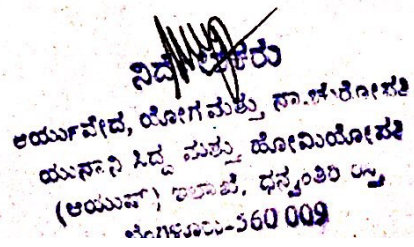 ನಿರ್ದೇಶಕರು
ಆಯುರ್ವೇದ, ಯೋಗ ಮತ್ತು ನ್ಯಾಚುರೋಪತಿ
ಯುನಾನಿ ಸಿದ್ಧ ಮತ್ತು ಹೋಮಿಯೋಪತಿ
(ಆಯುಷ್) ಇಲಾಖೆ, ಧನ್ವಂತರಿ ರಸ್ತೆ
ಬೆಂಗಳೂರು-560 009